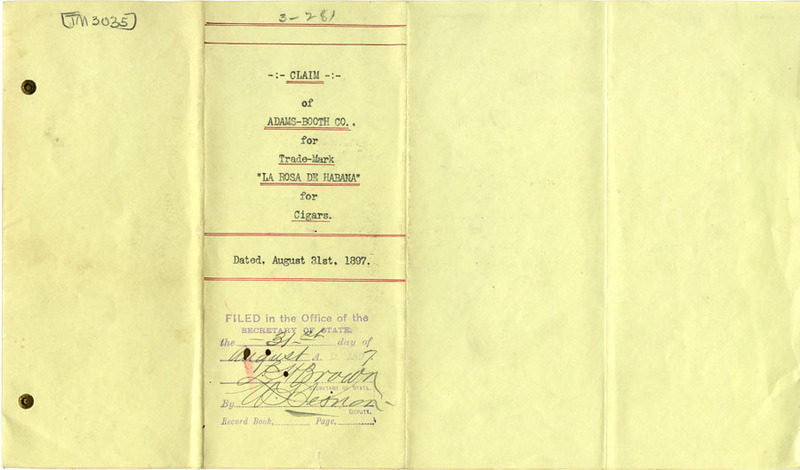 TM 3035
3-281
-:- CLAIM -:-
of
ADAMS-BOOTH CO..
for
Trade-Mark
"LA ROSA DE HABANA"
for
Cigars.
Dated, August 31st, 1897.
FILED in the Office of the
SECRETARY OF STATE,
the 31st day of
August A. D. 1897
L. H. Brown
SECRETARY OF STATE.
By
DEPUTY.
Record Book, Page,